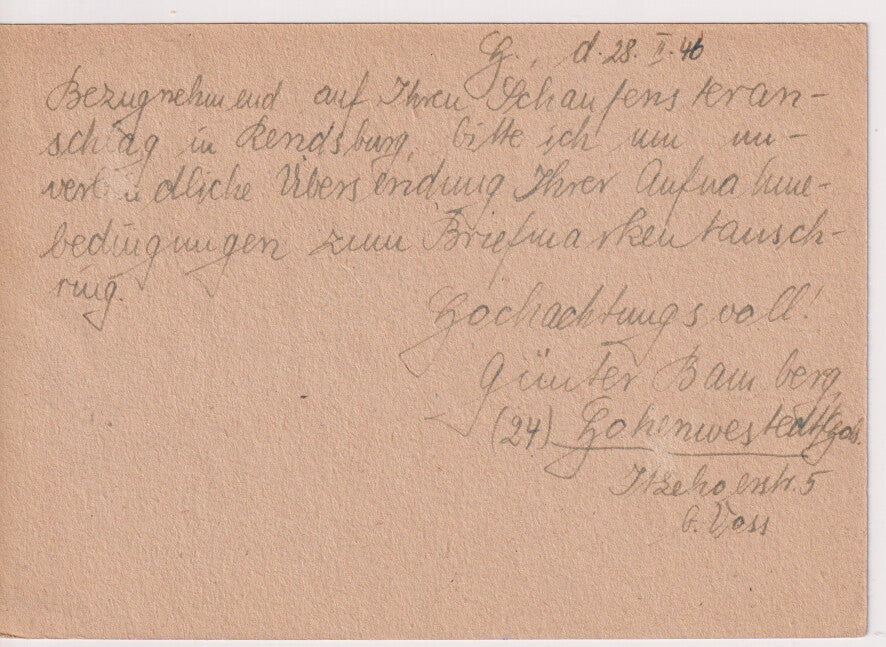 H., d. 28. II. 46
Bezugnehmend auf Ihren Schaufensteran-
schlag in Rendsburg, bitte ich um un-
verbindliche Übersendung Ihrer Aufnahme-
bedingungen zum Briefmarkentausch-
ring.
Hochachtungsvoll!
Günter Bamberg,
(24) Hohenwestedt/Hol.
Itzehoerstr. 5
b. Voss